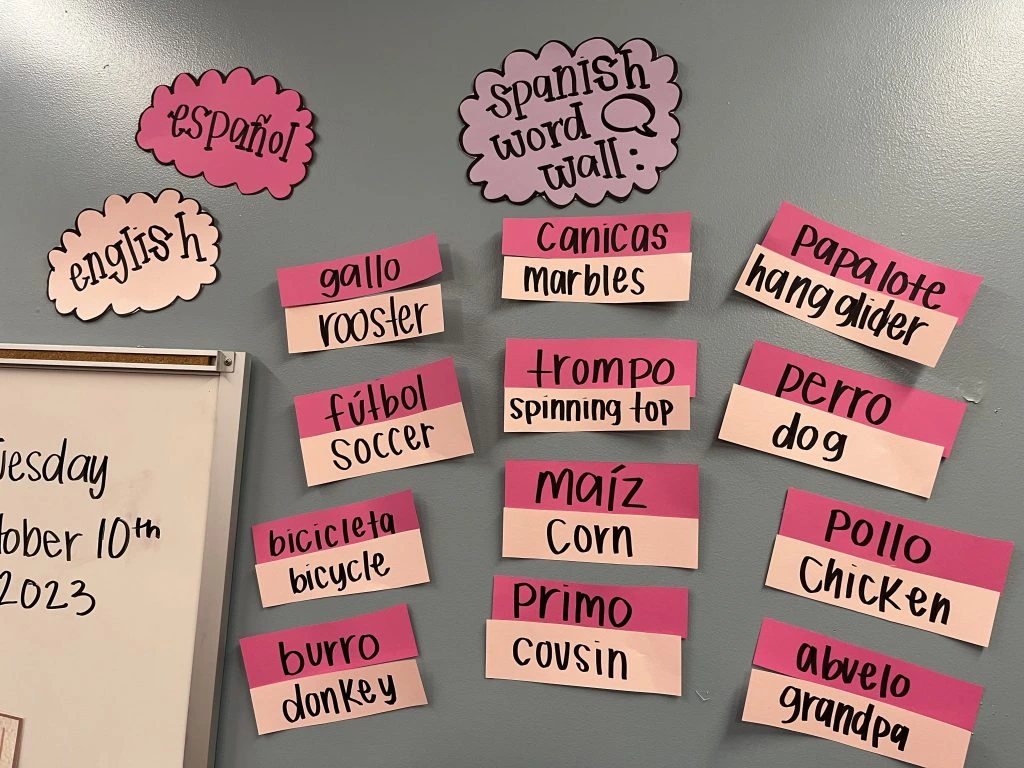 español
english
spanish
word
wall:
gallo
rooster
fútbol
soccer
bicicleta
bicycle
burro
donkey
canicas
marbles
trompo
spinning top
maíz
corn
primo
cousin
papalote
hang glider
perro
dog
pollo
chicken
abuelo
grandpa
uesday
tober 10th
2023